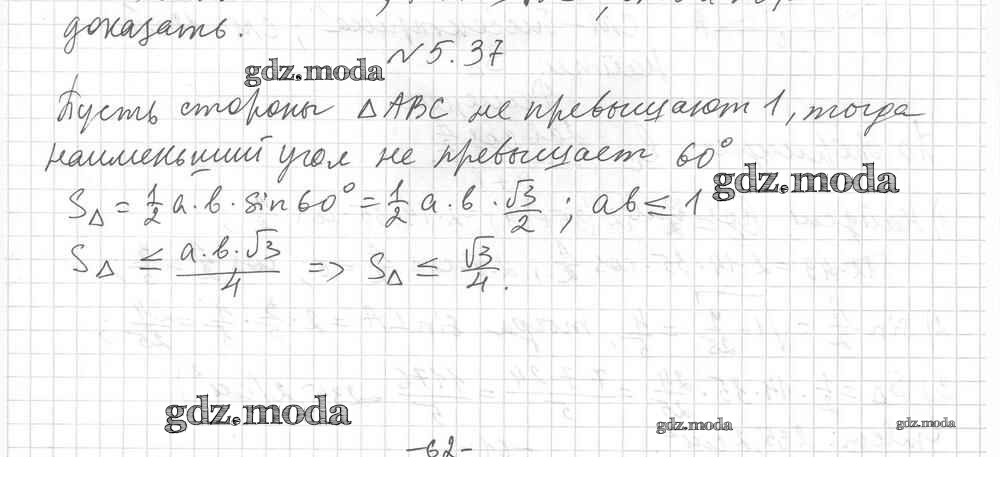 доказать.
№ 5.37
gdz.moda
Пусть стороны △ABC не превышают 1, тогда
наименьший угол не превышает 60°
gdz.moda
S△ = 1/2 a·b·sin60° = 1/2 a·b·√3/2; ab ≤ 1
S△ ≤ a·b·√3/4 => S△ ≤ √3/4.
gdz.moda
gdz.moda
gdz.moda
-62-